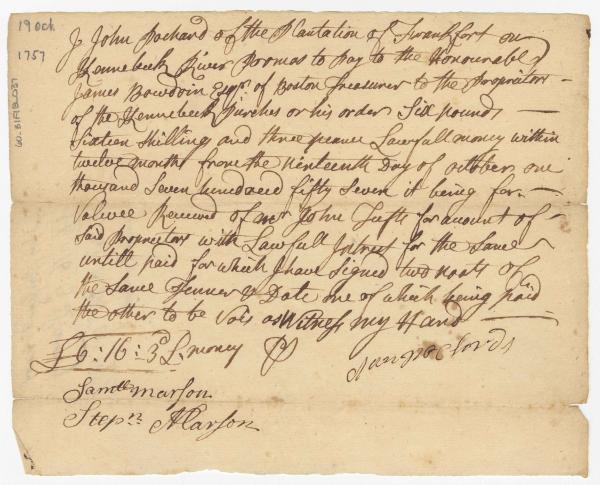 19 Oct.
1757
60.31F1B.037
J John Pochard of the Plantation of Frankfort on
Kennebeck River Promas to pay to the Honourable
James Bowdoin Esqr. of Boston Treasurer to the Propriators
of the Kennebeck Purches or his order Six pounds
Sixteen Shilling and three pence Lawfull money within
twelve months from the ninteenth Day of october one
thousand Seven hundred fifty Seven it being for
Valuee Received of mr John Tufts for acount of
Said Propriators with Lawfull Intrest for the Same
untill paid for which J have Signed two noats of
the Same Tenner & Date one of which being paid
the other to be Vois as Witness my Hand
£6:16:3d L. money
Samll marson
Stepn Marson